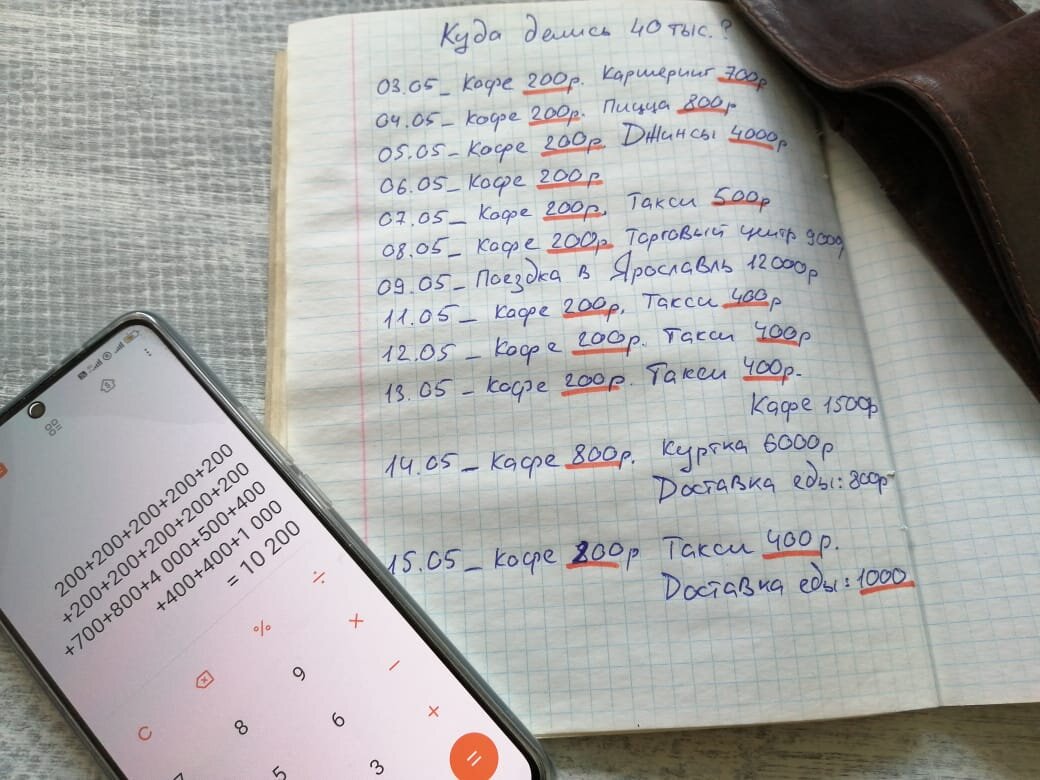 Куда делись 40 тыс.?
03.05_ Кофе 200р. Каршеринг 700р
04.05_ Кофе 200р. Пицца 800р
05.05_ Кофе 200р. Джинсы 4000р
06.05_ Кофе 200р
07.05_ Кофе 200р. Такси 500р
08.05_ Кофе 200р. Торговый центр 9000р
09.05_ Поездка в Ярославль 12000р
11.05_ Кофе 200р. Такси 400р
12.05_ Кофе 200р. Такси 400р
13.05_ Кофе 200р. Такси 400р.
Кафе 1500р
14.05_ Кафе 800р. Куртка 6000р
Доставка еды: 800р
15.05_ Кофе 200р Такси 400р.
Доставка еды: 1000
200+200+200+200+200+200
+200+200+200+200+200
+700+800+4 000+500+400
+400+400+1 000
= 10 200
÷
%
×
9
−
C
8
6
+
5
3
=